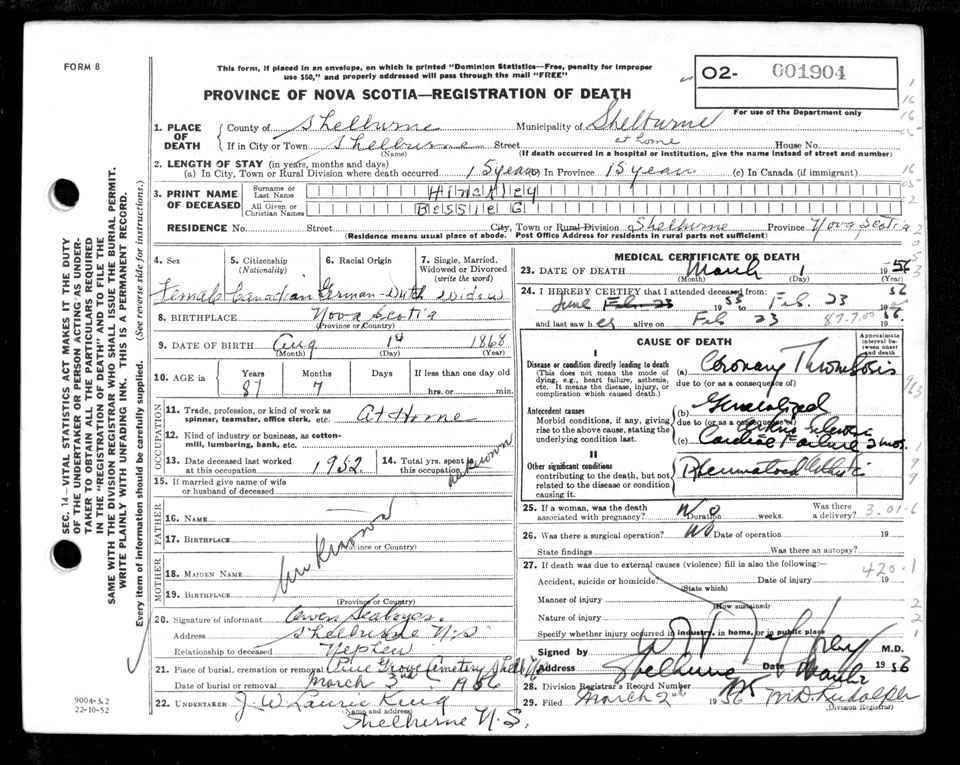 FORM 8
This form, if placed in an envelope, on which is printed "Dominion Statistics—Free, penalty for improper
use $50," and properly addressed will pass through the mail "FREE"
02- 001904
For use of the Department only
PROVINCE OF NOVA SCOTIA—REGISTRATION OF DEATH
1. PLACE OF DEATH
County of Shelburne Municipality of Shelburne
If in City or Town Shelburne Street at home House No.
(Name) (If death occurred in a hospital or institution, give the name instead of street and number)
2. LENGTH OF STAY (in years, months and days)
(a) In City, Town or Rural Division where death occurred 15 years (b) In Province 15 years (c) In Canada (if immigrant)
3. PRINT NAME OF DECEASED
Surname or Last Name HINCKLEY
All Given or Christian Names BESSIE G
RESIDENCE No. Street City, Town or Rural Division Shelburne Province Nova Scotia
(Residence means usual place of abode. Post Office Address for residents in rural parts not sufficient)
4. Sex
Female
5. Citizenship
(Nationality)
Canadian
6. Racial Origin
German-Dutch
7. Single, Married,
Widowed or Divorced
(write the word)
Widow
8. BIRTHPLACE Nova Scotia
(Province or Country)
9. DATE OF BIRTH Aug 1st 1868
(Month) (Day) (Year)
10. AGE in Years Months If less than one day
87 7 hrs. or min.
OCCUPATION
11. Trade, profession, or kind of work as
spinner, teamster, office clerk, etc. At Home
12. Kind of industry or business, as cotton-
mill, lumbering, bank, etc.
13. Date deceased last worked
at this occupation 1952
14. Total yrs. spent in
this occupation unknown
15. If married give name of wife
or husband of deceased
FATHER
16. NAME
17. BIRTHPLACE
(Province or Country)
unknown
MOTHER
18. MAIDEN NAME
19. BIRTHPLACE
(Province or Country)
20. Signature of informant Owen Seaboyer
Address Shelburne N.S
Relationship to deceased Nephew
21. Place of burial, cremation or removal Pine Grove Cemetery
Date of burial or removal March 3rd 1956
22. UNDERTAKER J. W. Laurie King
(Name and address)
Shelburne N.S.
MEDICAL CERTIFICATE OF DEATH
23. DATE OF DEATH March 1 1956
(Month) (Day)
24. I HEREBY CERTIFY that I attended deceased from: 56
June Feb. 23 1955 to Feb. 23 19
and last saw her alive on Feb 23 19 56.
87.7.00
CAUSE OF DEATH
Approximate
interval be-
tween onset
and death
I
Disease or condition directly leading to death
(This does not mean the mode of
dying, e.g., heart failure, asthenia,
etc. It means the disease, injury, or
complication which caused death.)
(a) Coronary Thrombosis
due to (or as a consequence of)
Antecedent causes
Morbid conditions, if any, giving
rise to the above cause, stating the
underlying condition last.
(b) Generalized
due to (or as a consequence of)
(c) Cardiac Failure 2 mos.
II
Other significant conditions
contributing to the death, but not
related to the disease or condition
causing it.
Rheumatoid Arthritis
25. If a woman, was the death
associated with pregnancy? No Duration weeks. Was there
a delivery? 3.01-6
26. Was there a surgical operation? No Date of operation 19
State findings Was there an autopsy?
27. If death was due to external causes (violence) fill in also the following:
420-1
Accident, suicide or homicide? Date of injury 19
(State which)
Manner of injury
(How sustained)
Nature of injury
Specify whether injury occurred in industry, in home, or in public place
Signed by M.D.
Address Shelburne Date March 2 1956
28. Division Registrar's Record Number
29. Filed March 2nd 1956 M D Rudolph
(Division Registrar)
SEC. 14—VITAL STATISTICS ACT MAKES IT THE DUTY
OF THE UNDERTAKER OR PERSON ACTING AS UNDER-
TAKER TO OBTAIN ALL THE PARTICULARS REQUIRED
IN THE "REGISTRATION OF DEATH" AND TO FILE THE
SAME WITH THE DIVISION REGISTRAR WHO SHALL ISSUE THE BURIAL PERMIT.
WRITE PLAINLY WITH UNFADING INK. THIS IS A PERMANENT RECORD.
Every item of information should be carefully supplied. (See reverse side for instructions.)
9004-3.2
22-10-52